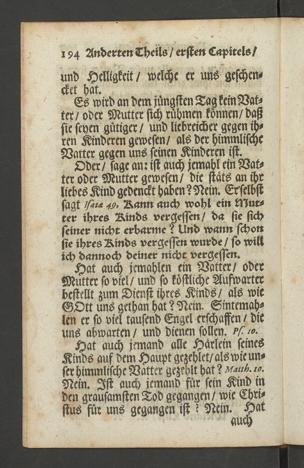 194 Anderten Theils / ersten Capitels /
und Helligkeit / welche er uns geschen-
cket hat.
Es wird an dem jüngsten Tag kein Vat-
ter / oder Mutter sich rühmen können / daß
sie seyen gütiger / und liebreicher gegen ih-
ren Kinderen gewesen / als der himmlische
Vatter gegen uns seinen Kinderen ist.
Oder / sage an: ist auch jemahl ein Vat-
ter oder Mutter gewesen / die stäts an ihr
liebes Kind gedenckt haben? Nein. Er selbst
sagt Isaiæ 49. Kann auch wohl ein Mut-
ter ihres Kinds vergessen / da sie sich
seiner nicht erbarme? Und wann schon
sie ihres Kinds vergessen wurde / so will
ich dannoch deiner nicht vergessen.
Hat auch jemahlen ein Vatter / oder
Mutter so viel / und so köstliche Aufwarter
bestellt zum Dienst ihres Kinds / als wie
GOtt uns gethan hat? Nein. Sintemah-
len er so viel tausend Engel erschaffen / die
uns abwarten / und dienen sollen. Ps. 10.
Hat auch jemand alle Härlein seines
Kinds auf dem Haupt gezehlet / als wie un-
ser himmlische Vatter gezehlt hat? Matth. 10.
Nein. Ist auch jemand für sein Kind in
den grausamsten Tod gegangen / wie Chri-
stus für uns gegangen ist? Nein. Hat
auch